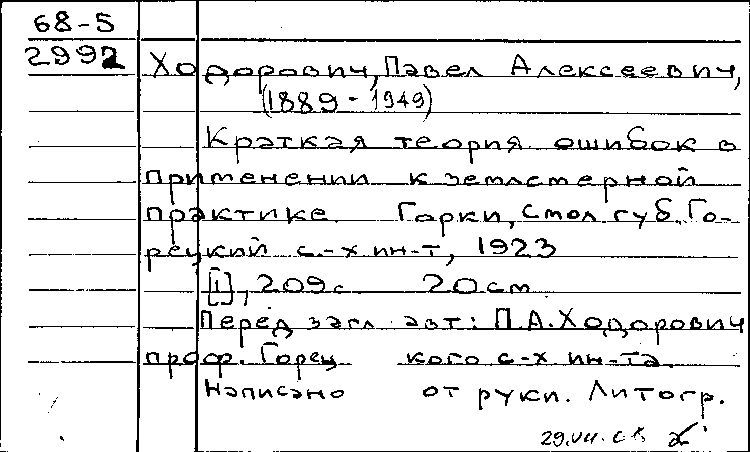 68-5
2992
Ходорович, Павел Алексеевич,
(1889-1949)
Краткая теория ошибок в
применении к землемерной
практике. Горки, Смол. губ. Го-
рецкий с.-х ин-т, 1923
[1], 209 с 20 см
Перед загл авт: П.А. Ходорович
проф. Горец кого с-х ин-та.
Написано от руки. Литогр.
29.VII.68